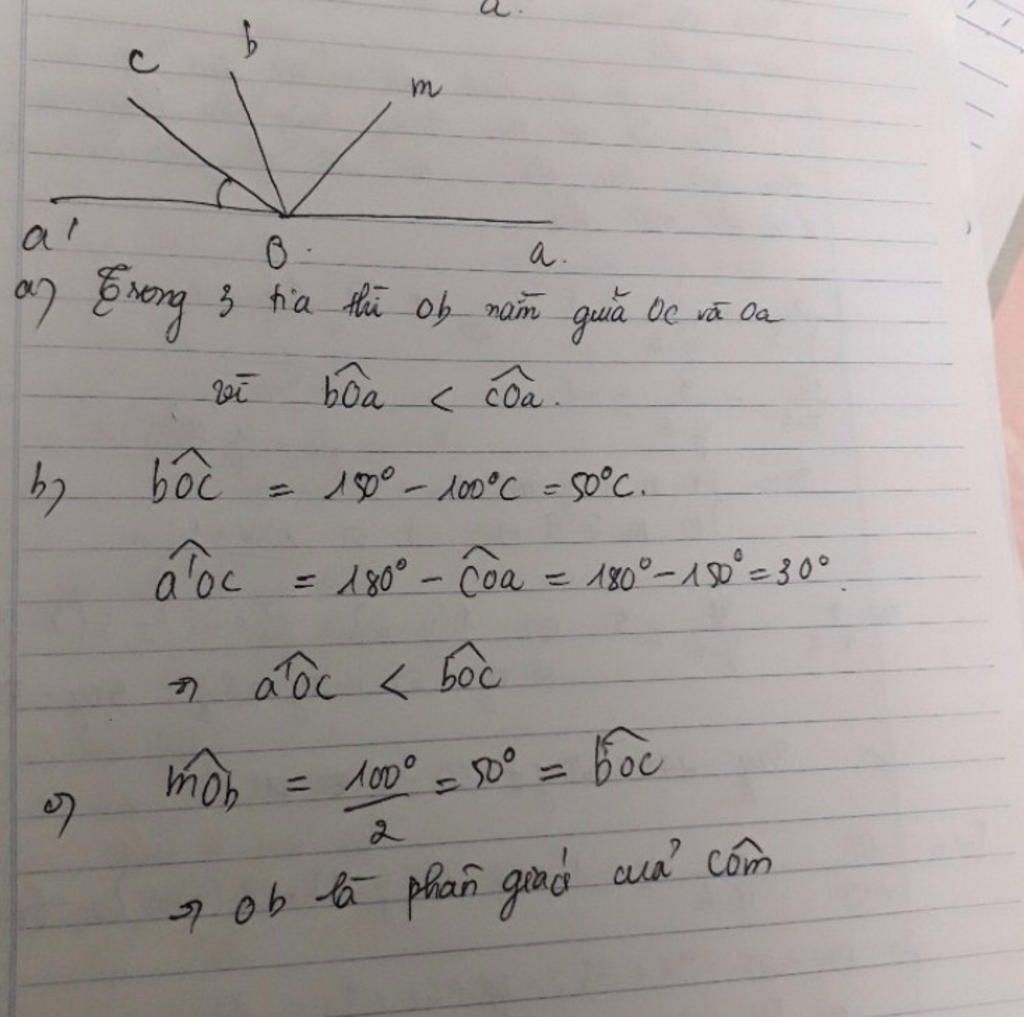 a.
c b m
a' O a.
a) Trong 3 tia thì Ob nằm giữa Oc và Oa
vì bOa < cOa.
b) bOc = 150° - 100°C = 50°C.
a'Oc = 180° - cOa = 180° - 150° = 30°.
⇒ a'Oc < bOc
c) mOb = 100°/2 = 50° = bOc
⇒ Ob là phân giác của cOm